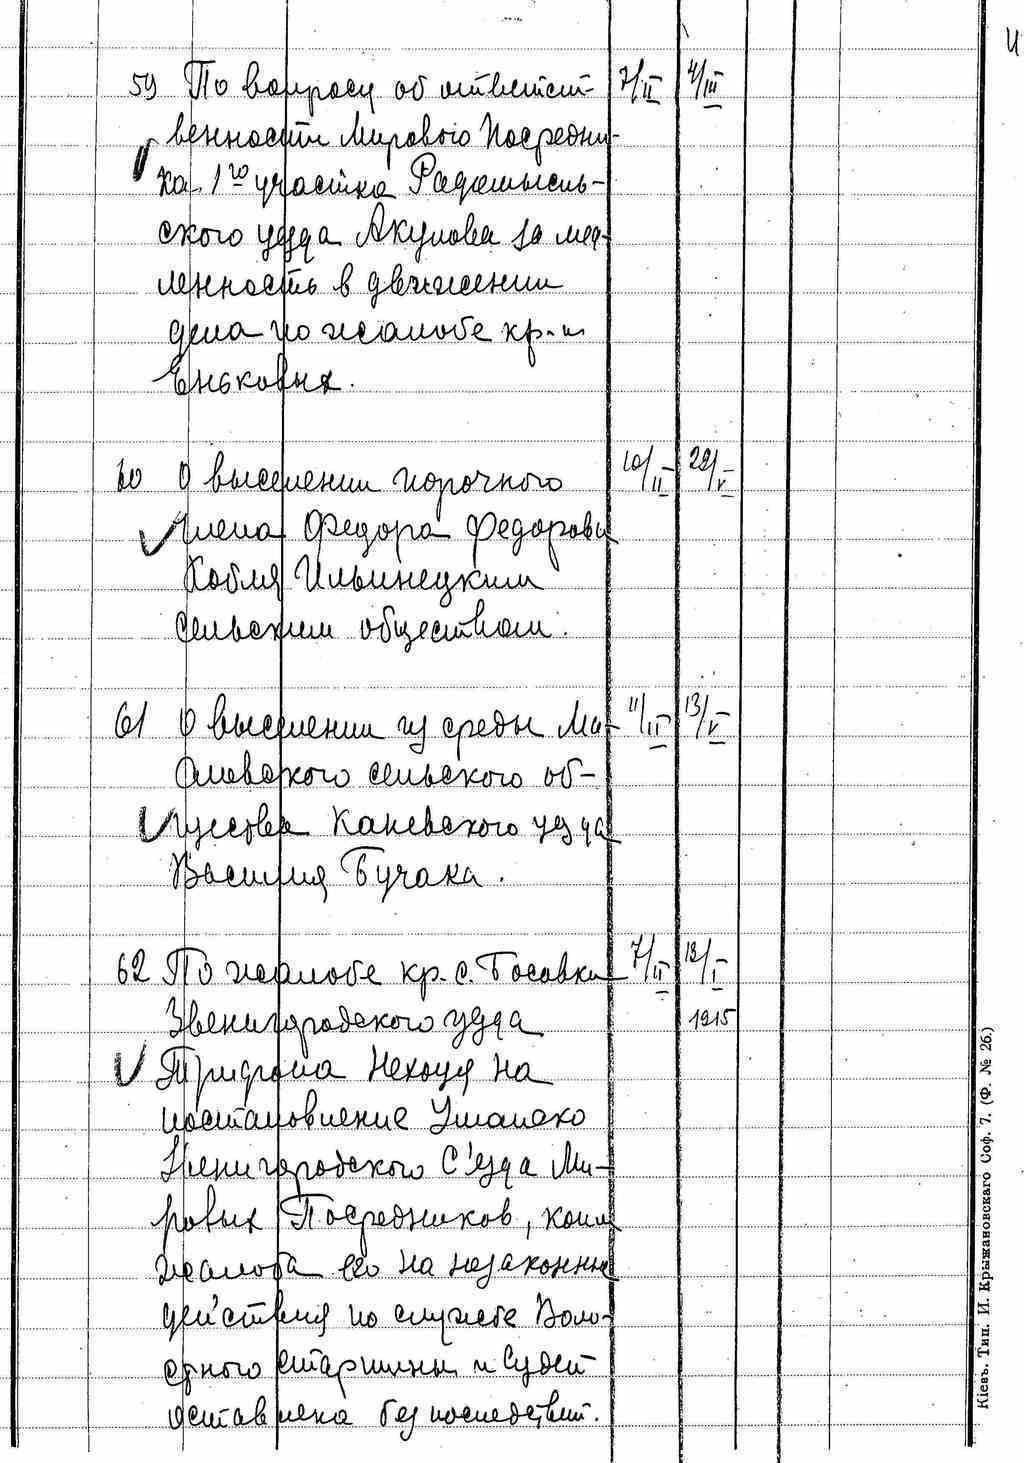 59 По вопросу об ответст- 7/II 4/III
венности Мирового Посредни-
ка 1го участка Радомысль-
ского уезда Акулова за мед-
ленность в движении
дела по жалобе кр-н
Еньковых.
60 О выселении порочного 10/II 22/V
члена Федора Федорова
Кобля Ильинецким
сельским обществом.
61 О выселении из среды Ма- 11/II 13/V
словского сельского об-
щества Каневского уезда
Василия Бучака.
62 По жалобе кр. с. Босовки 7/II 12/I
Звенигородского уезда 1915
Трифона Нехоця на
постановление Уманско
Звенигородского С'езда Ми-
ровых Посредников, коим
жалоба его на незаконные
действия по службе Воло-
стного старшины и Судей
оставлена без последствий.
Кіевъ. Тип. И. Крыжановскаго Соф. 7. (Ф. № 26.)